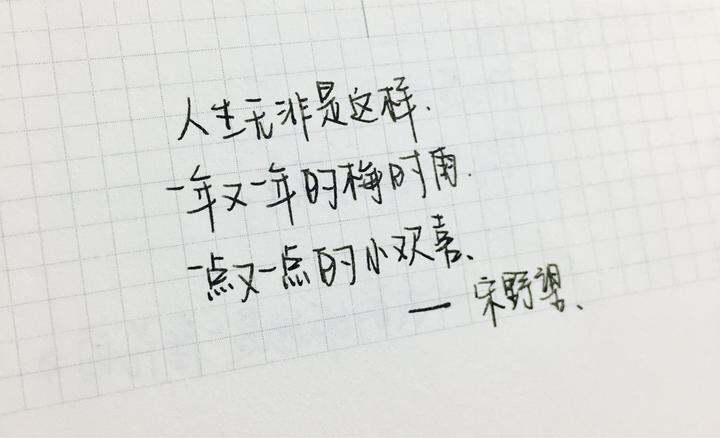 人生无非是这样.
一年又一年的梅时雨.
一点又一点的小欢喜、
— 宋野望、